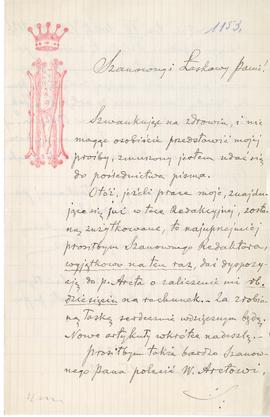 1153.
Szanowny i Łaskawy Panie!
Szwankując na zdrowiu, i nie
mogąc osobiście przedstawić mojej
prośby, zmuszony jestem udać się
do pośrednictwa pisma.
Otóż, jeżeli prace moje, znajdu-
jące się już w tece Redakcyjnej, zosta-
ną zużytkowane, to najuprzejmiej
prosiłbym Szanownego Redaktora,
wyjątkowo na ten raz, dać dyspozy-
cję do p. Arcta o zaliczenie mi rb.
dziesięciu na rachunek. Za zrobio-
ną łaskę serdecznie wdzięcznym będę.
Nowe artykuły wkrótce nadeszlę.
prosiłbym także bardzo Szanow-
nego Pana polecić W. Arctowi,